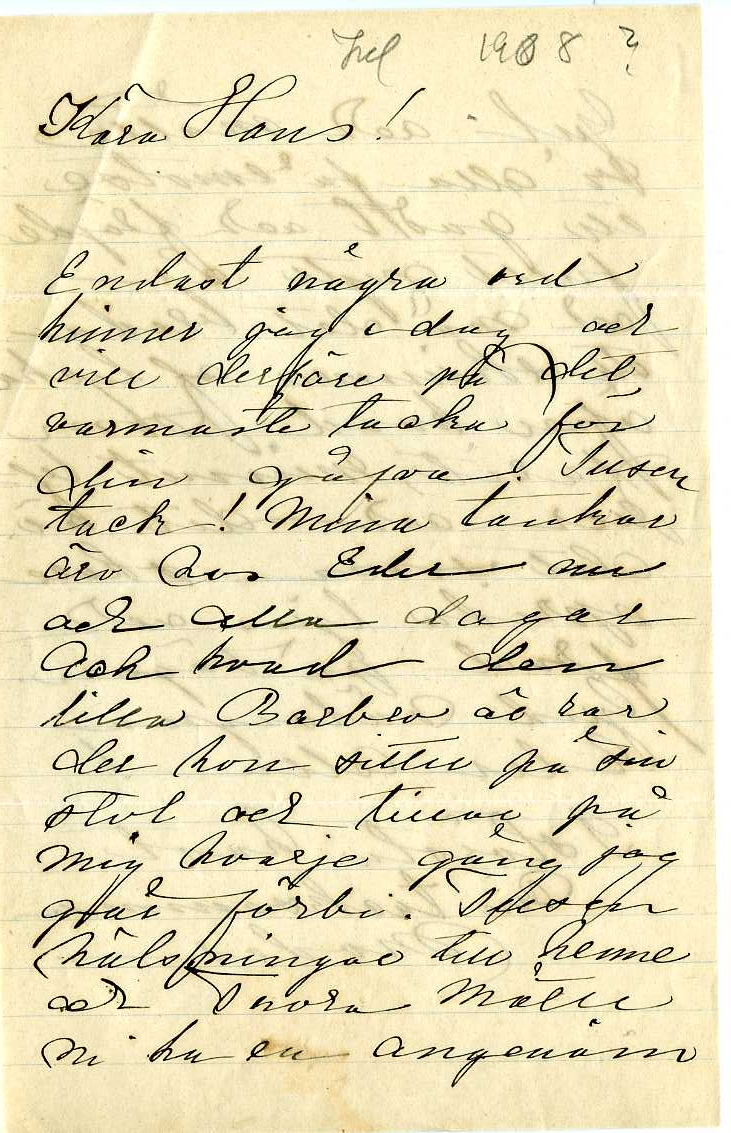 Jul 1908 ?
Kära Hans!
Endast några ord
hinner jag i dag och
vill derföre på det
varmaste tacka för
din gåfva. Tusen
tack! Mina tankar
äro hos Eder nu
och alla dagar
Ack hvad den
lilla Barbro är rar
der hon sitter på sin
stol och tittar på
mig hvarje gång jag
går förbi. Tusen
hälsningar till henne
och Thora Måtte
ni ha en angenäm